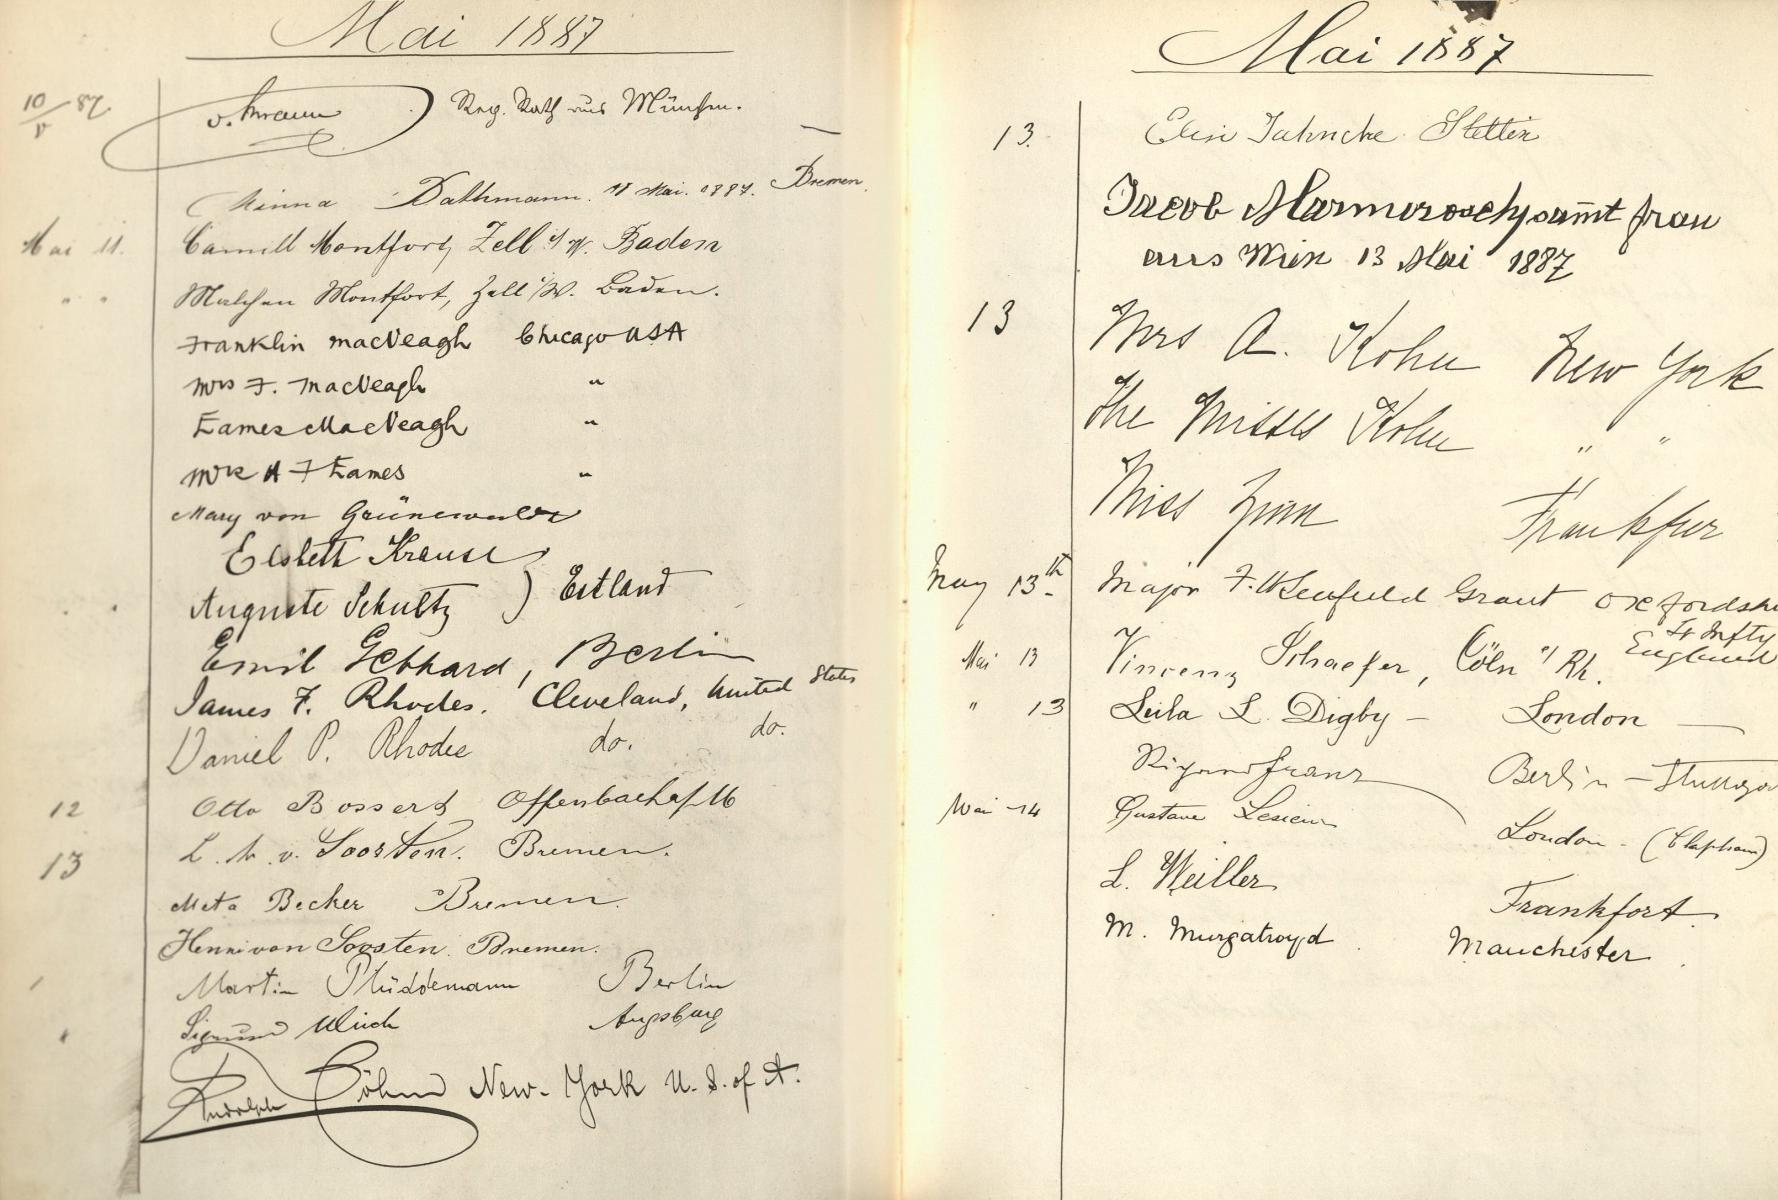 Mai 1887
10/V 87. Reg. Rath aus München.
Minna Dathmann. 11 Mai. 1887. Bremen.
Mai 11. Camill Montfort, Zell i/W. Baden
" " Montfort, Zell i/W. Baden.
Franklin MacVeagh Chicago USA
Mrs F. MacVeagh "
Eames MacVeagh "
Mrs A F Eames "
Mary von Grünewaldt
Elsbeth Krause
Auguste Schultz ) Estland
Emil Gebhard, Berlin
James F. Rhodes. Cleveland, United States
Daniel P. Rhodes do. do.
12 Otto Bossert Offenbach a/M
13 L. v. Soosten. Bremen.
Meta Becker Bremen.
Henni van Soosten. Bremen.
Martin Plüddemann Berlin
Sigmund Ulrich Augsburg
Rudolph Böhm New-York U.S. of A.
Mai 1887
13. Elise Jahncke Stettin
Jacob Marmorosch sammt frau
aus Wien 13 Mai 1887
13 Mrs A. Kohn New York
The Misses Kohn " "
Miss Zinn Frankfur
May 13th Major F. Grant Oxfordsh
Lt Infty
England
Mai 13 Vincenz Schaefer, Cöln a/ Rh.
" 13 Leila L. Digby – London —
Franz Berlin – Stuttgar
Mai 14 Gustave Lesieur London – (Clapham)
L. Weiller Frankfort.
M. Murgatroyd Manchester.